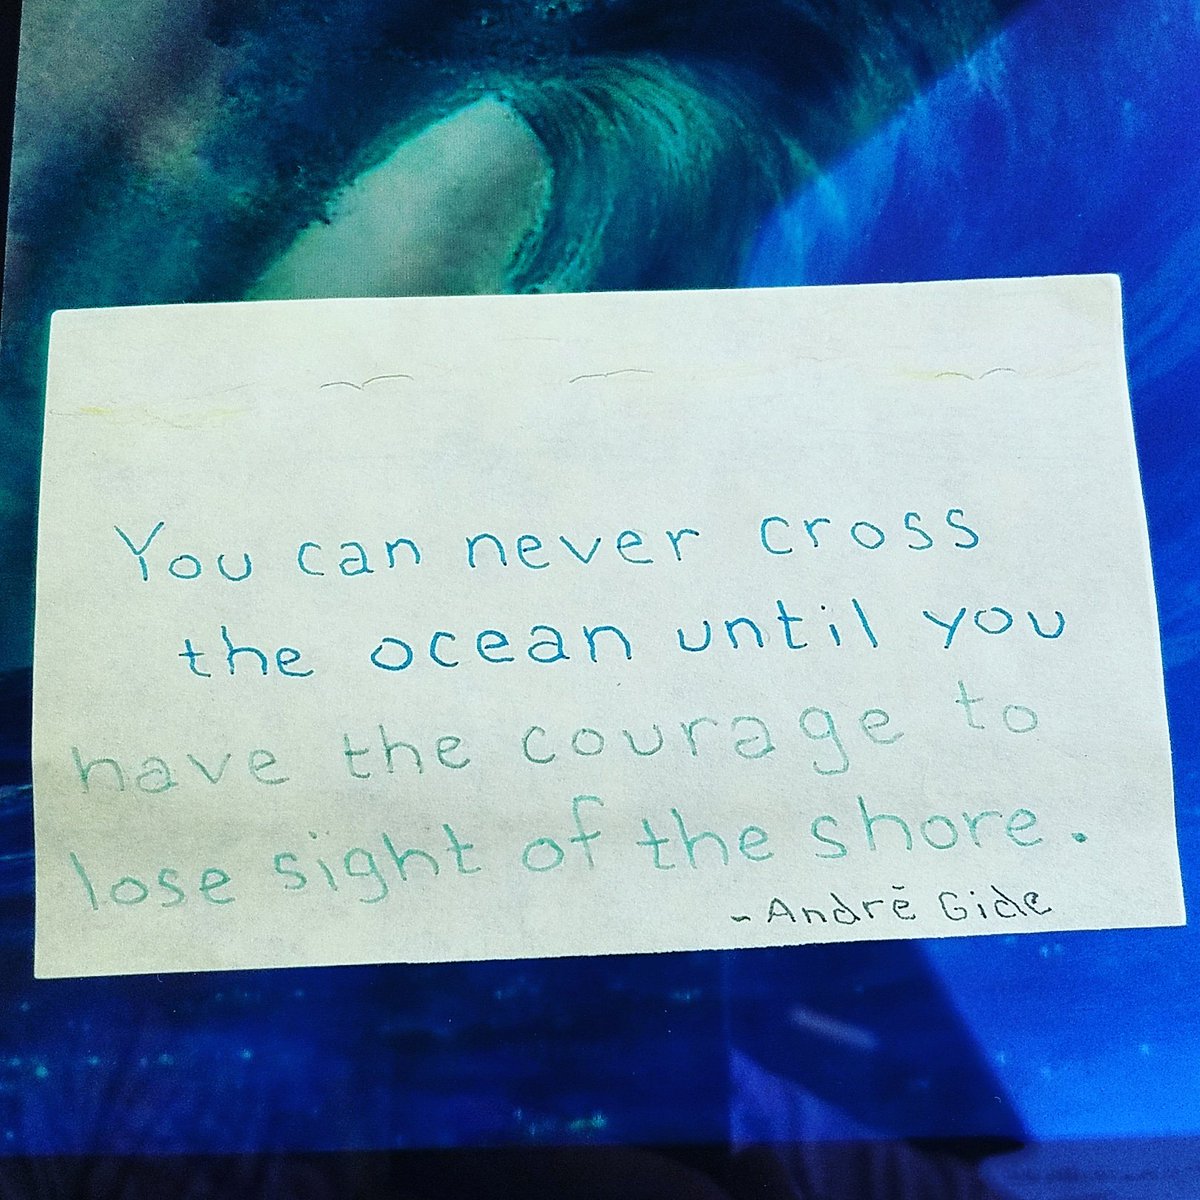 You can never cross
the ocean until you
have the courage to
lose sight of the shore.
- André Gide